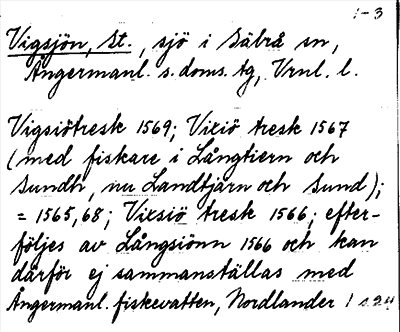 1-3
Vigsjön, St., sjö i Säbrå sn,
Ångermanl. s. doms. tg, Vrnl. l.
Vigsiötresk 1569; Vixiö tresk 1567
(med fiskare i Långtiern och
Sundh, nu Landtjärn och Sund);
= 1565, 68; Vixsiö tresk 1566; efter-
följes av Långsiönn 1566 och kan
därför ej sammanställas med
Ångermanl. fiskevatten, Nordlander 1 s. 24